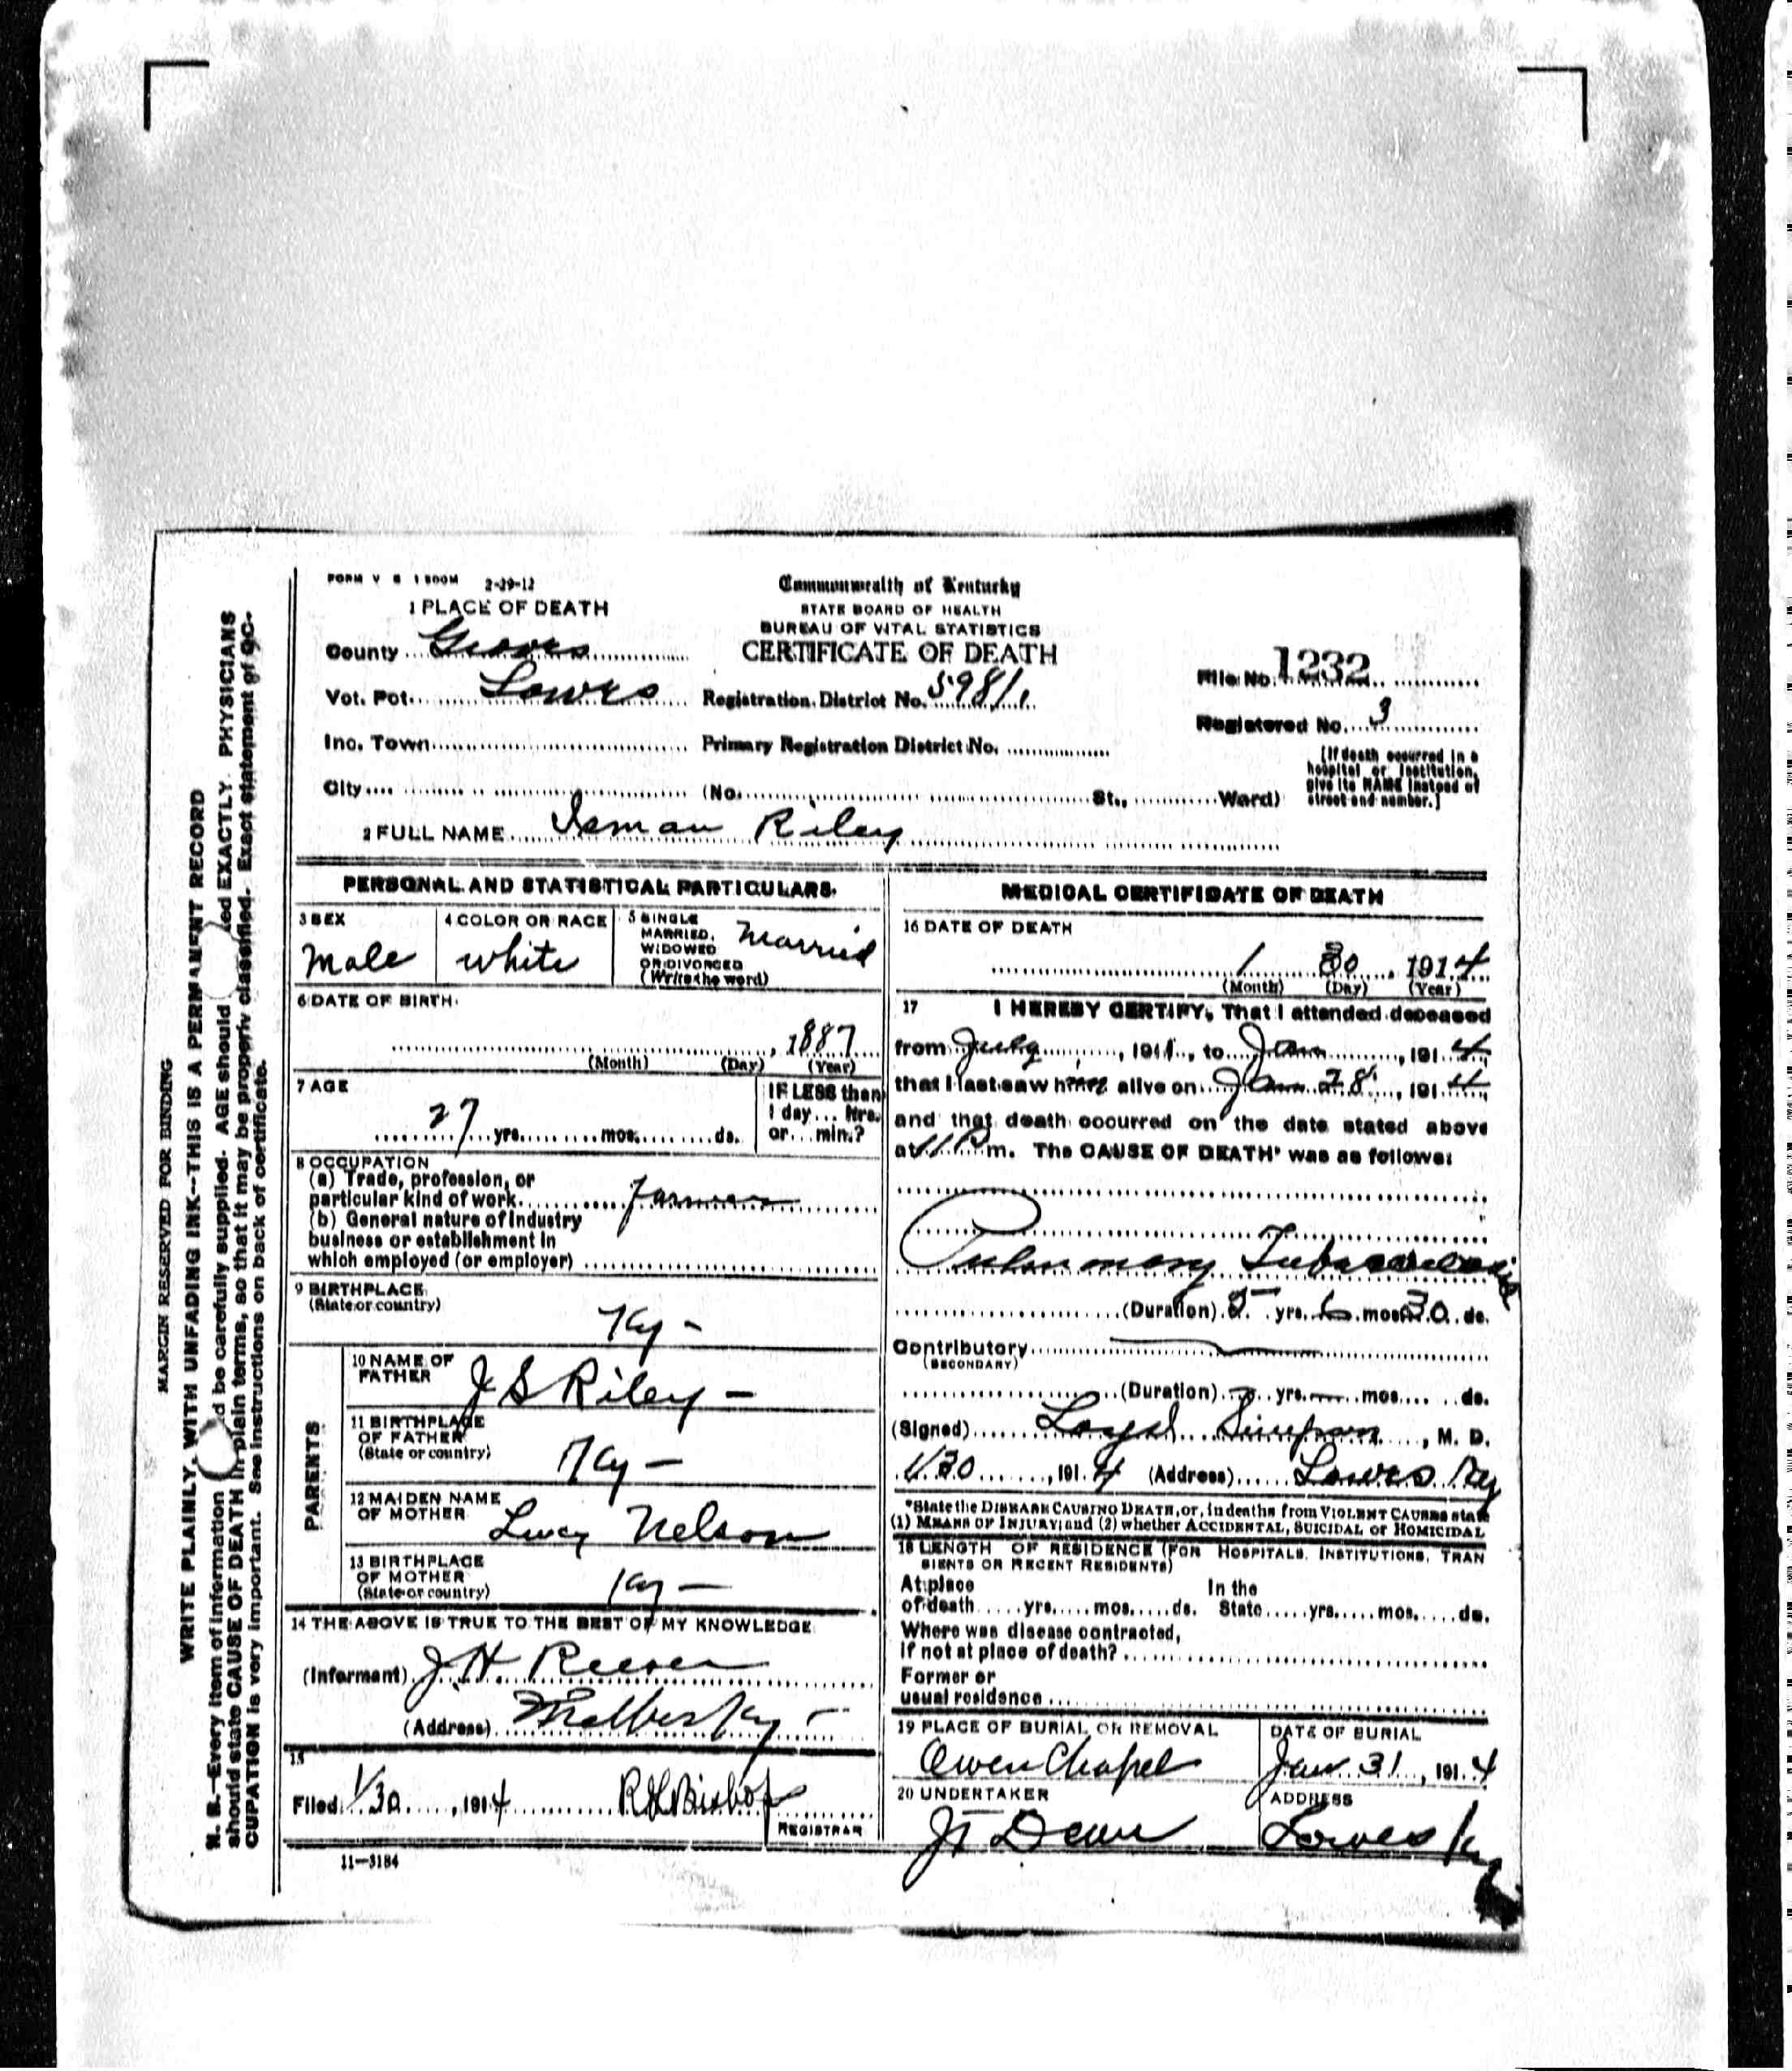 FORM V S 1 500M 2-29-12
Commonwealth of Kentucky
STATE BOARD OF HEALTH
BUREAU OF VITAL STATISTICS
CERTIFICATE OF DEATH
1 PLACE OF DEATH
County Graves
Vot. Pct. Lowes Registration District No. 5981
File No. 1232
Registered No. 3
Inc. Town Primary Registration District No.
City (No. St., Ward)
(If death occurred in a
hospital or institution,
give its NAME instead of
street and number.]
2 FULL NAME Isman Riley
PERSONAL AND STATISTICAL PARTICULARS
3 SEX
Male
4 COLOR OR RACE
white
5 SINGLE
MARRIED,
WIDOWED
OR DIVORCED
(Write the word)
Married
6 DATE OF BIRTH
, 1887
(Month) (Day) (Year)
7 AGE
27 yrs. mos. ds.
IF LESS than
1 day... Hrs.
or... min.?
8 OCCUPATION
(a) Trade, profession, or
particular kind of work. Farmer
(b) General nature of Industry
business or establishment in
which employed (or employer)
9 BIRTHPLACE
(State or country)
Ky -
PARENTS
10 NAME OF
FATHER
J S Riley -
11 BIRTHPLACE
OF FATHER
(State or country)
Ky -
12 MAIDEN NAME
OF MOTHER
Lucy Nelson
13 BIRTHPLACE
OF MOTHER
(State or country)
Ky -
14 THE ABOVE IS TRUE TO THE BEST OF MY KNOWLEDGE
(Informant) J. H. Reeves
(Address) Melber Ky -
15
Filed 1/30, 1914 R H Bishop
REGISTRAR
11-3184
MEDICAL CERTIFICATE OF DEATH
16 DATE OF DEATH
1 30, 1914
(Month) (Day) (Year)
17 I HEREBY CERTIFY, That I attended deceased
from July, 1911, to Jan, 1914,
that I last saw him alive on Jan 28, 1914,
and that death occurred on the date stated above
at 11 P m. The CAUSE OF DEATH* was as follows:
Pulmonary Tuberculosis
(Duration) 2 yrs. 6 mos. 30 ds.
Contributory
(SECONDARY)
(Duration) yrs. mos. ds.
(Signed) Loyd Simpson, M. D.
1/30, 1914 (Address) Lowes Ky
*State the DISEASE CAUSING DEATH, or, in deaths from VIOLENT CAUSES state
(1) MEANS OF INJURY; and (2) whether ACCIDENTAL, SUICIDAL or HOMICIDAL
18 LENGTH OF RESIDENCE (FOR HOSPITALS, INSTITUTIONS, TRAN
SIENTS OR RECENT RESIDENTS)
At place In the
of death yrs. mos. ds. State yrs. mos. ds.
Where was disease contracted,
If not at place of death?
Former or
usual residence
19 PLACE OF BURIAL OR REMOVAL
Owen Chapel
DATE OF BURIAL
Jan 31, 1914
20 UNDERTAKER
J T Dean
ADDRESS
Lowes Ky
MARGIN RESERVED FOR BINDING
WRITE PLAINLY, WITH UNFADING INK--THIS IS A PERMANENT RECORD
N. B.--Every item of information d be carefully supplied. AGE should ted EXACTLY. PHYSICIANS
should state CAUSE OF DEATH in plain terms, so that it may be properly classified. Exact statement of OC-
CUPATION is very important. See instructions on back of certificate.